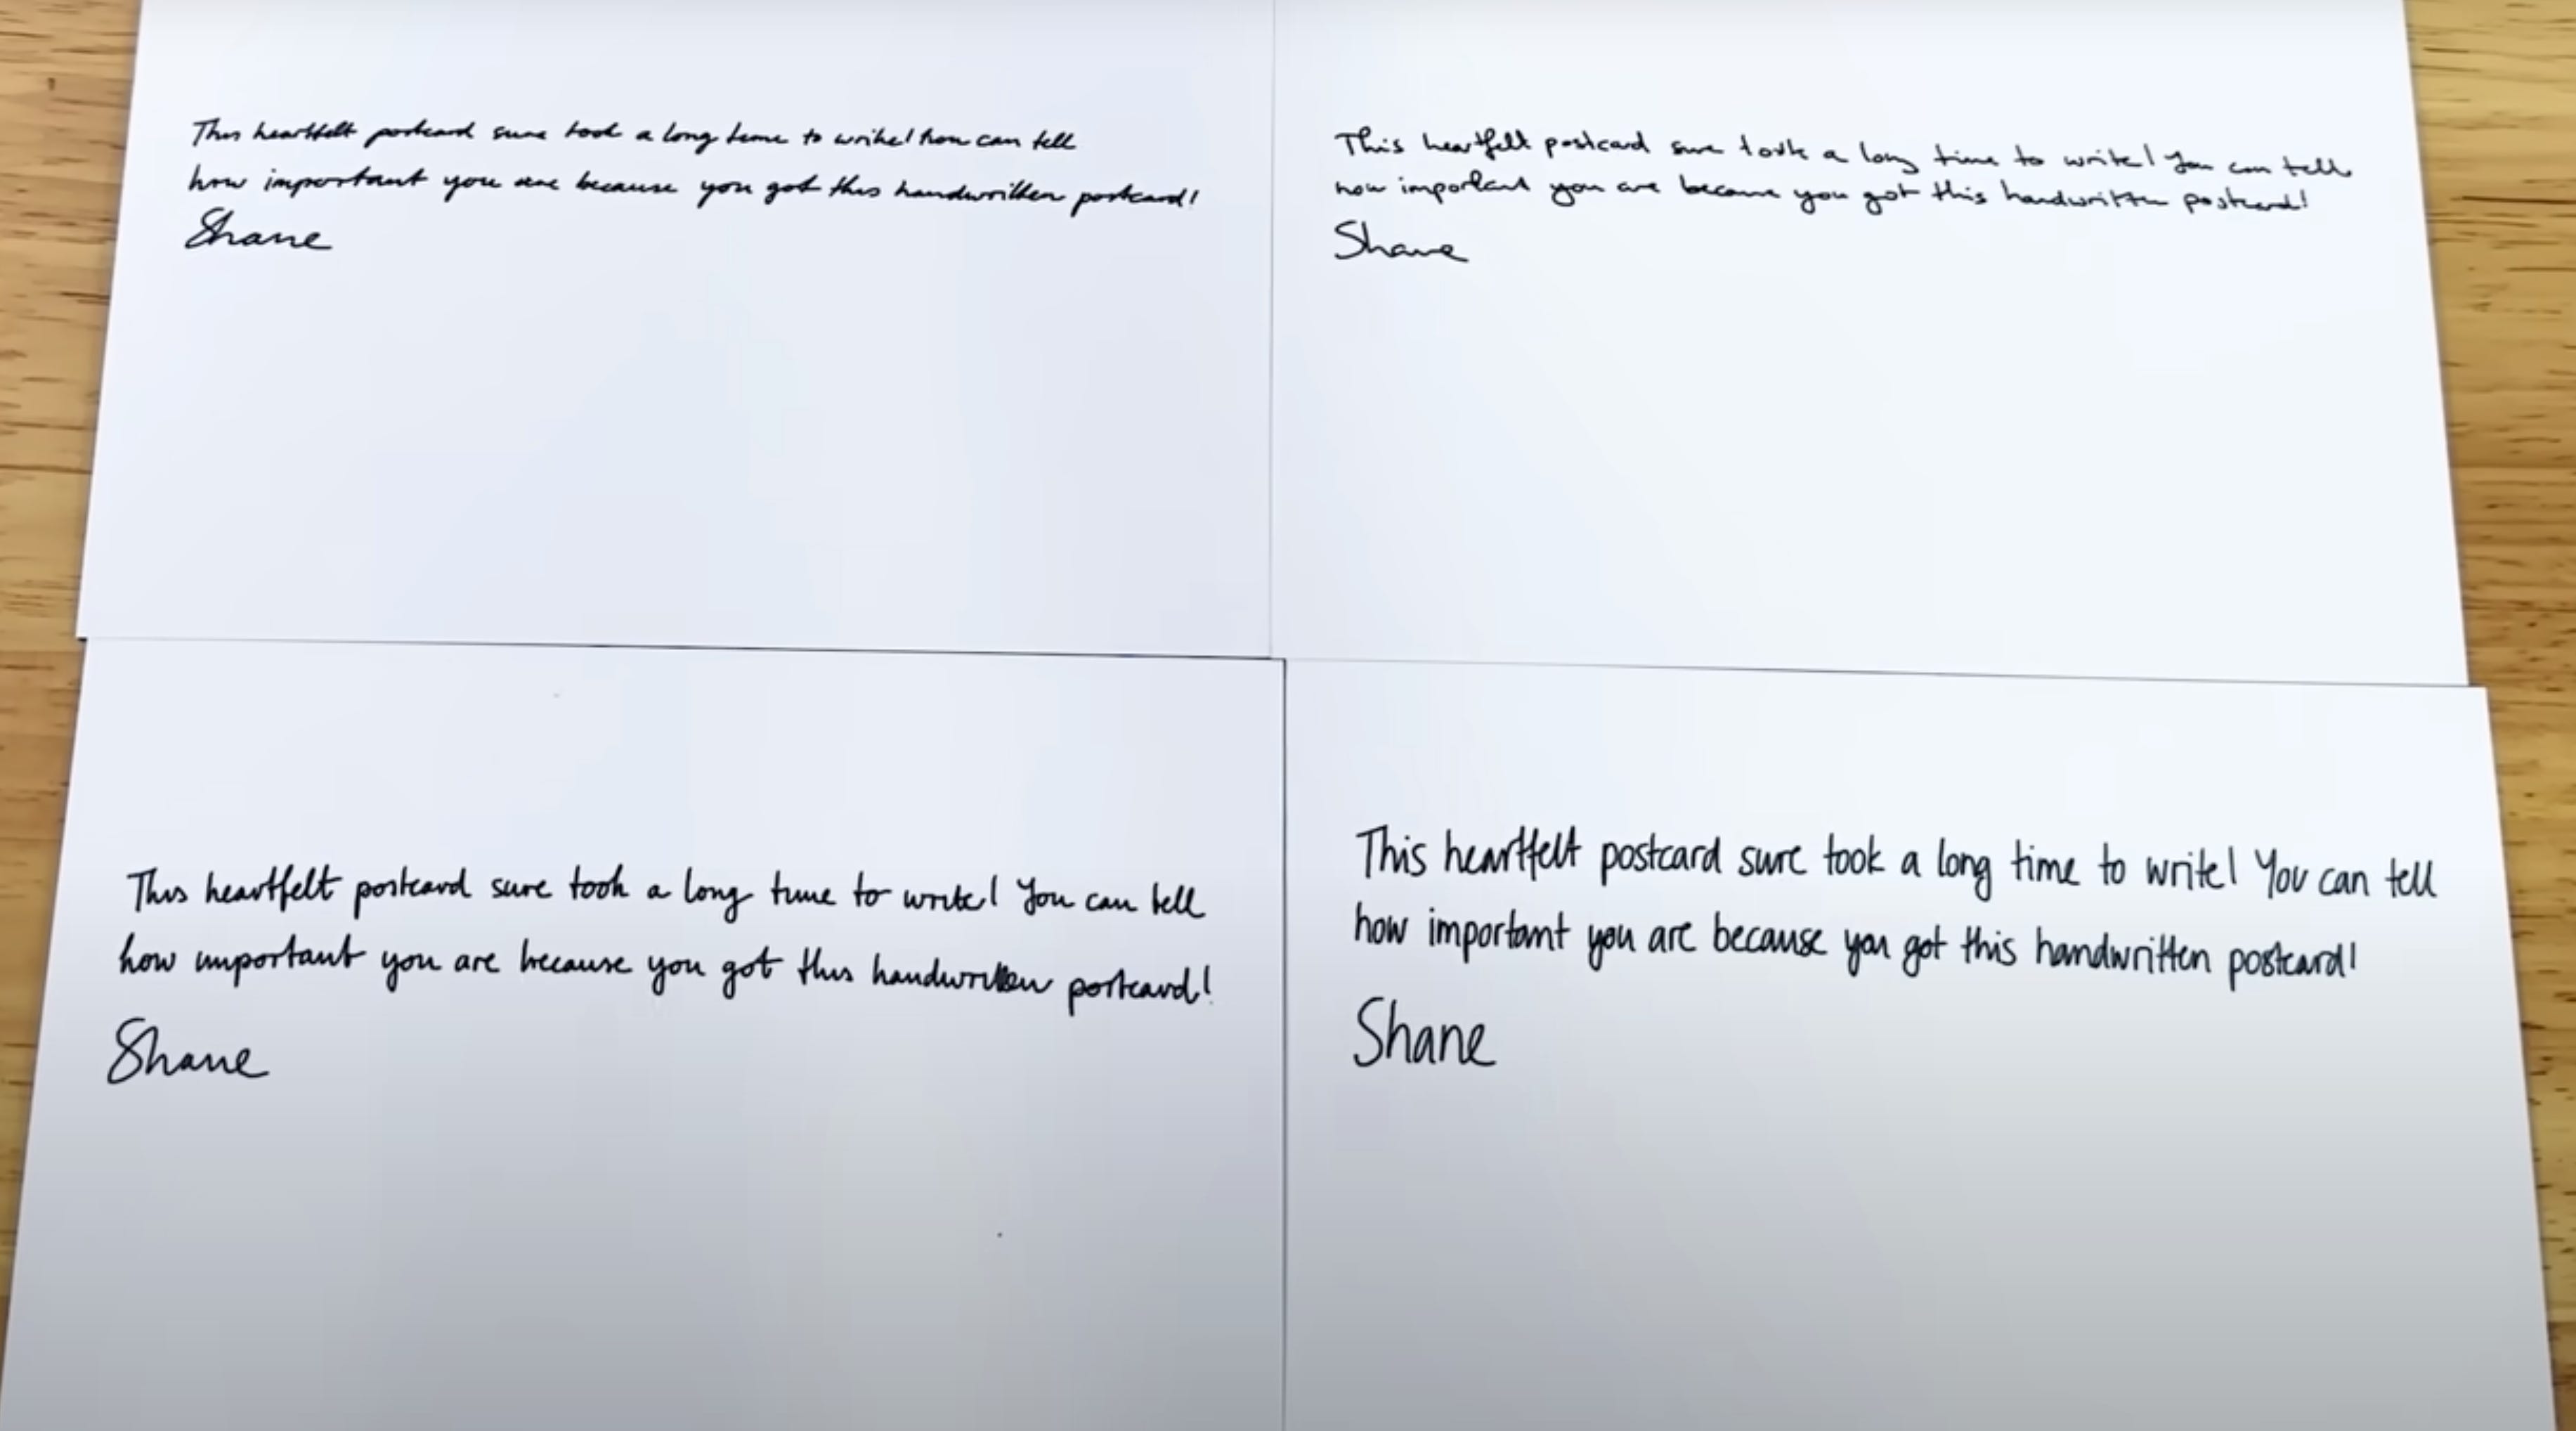 This heartfelt postcard sure took a long time to write! You can tell
how important you are because you got this handwritten postcard!
Shane
This heartfelt postcard sure took a long time to write! You can tell
how important you are because you got this handwritten postcard!
Shane
This heartfelt postcard sure took a long time to write! You can tell
how important you are because you got this handwritten postcard!
Shane
This heartfelt postcard sure took a long time to write! You can tell
how important you are because you got this handwritten postcard!
Shane